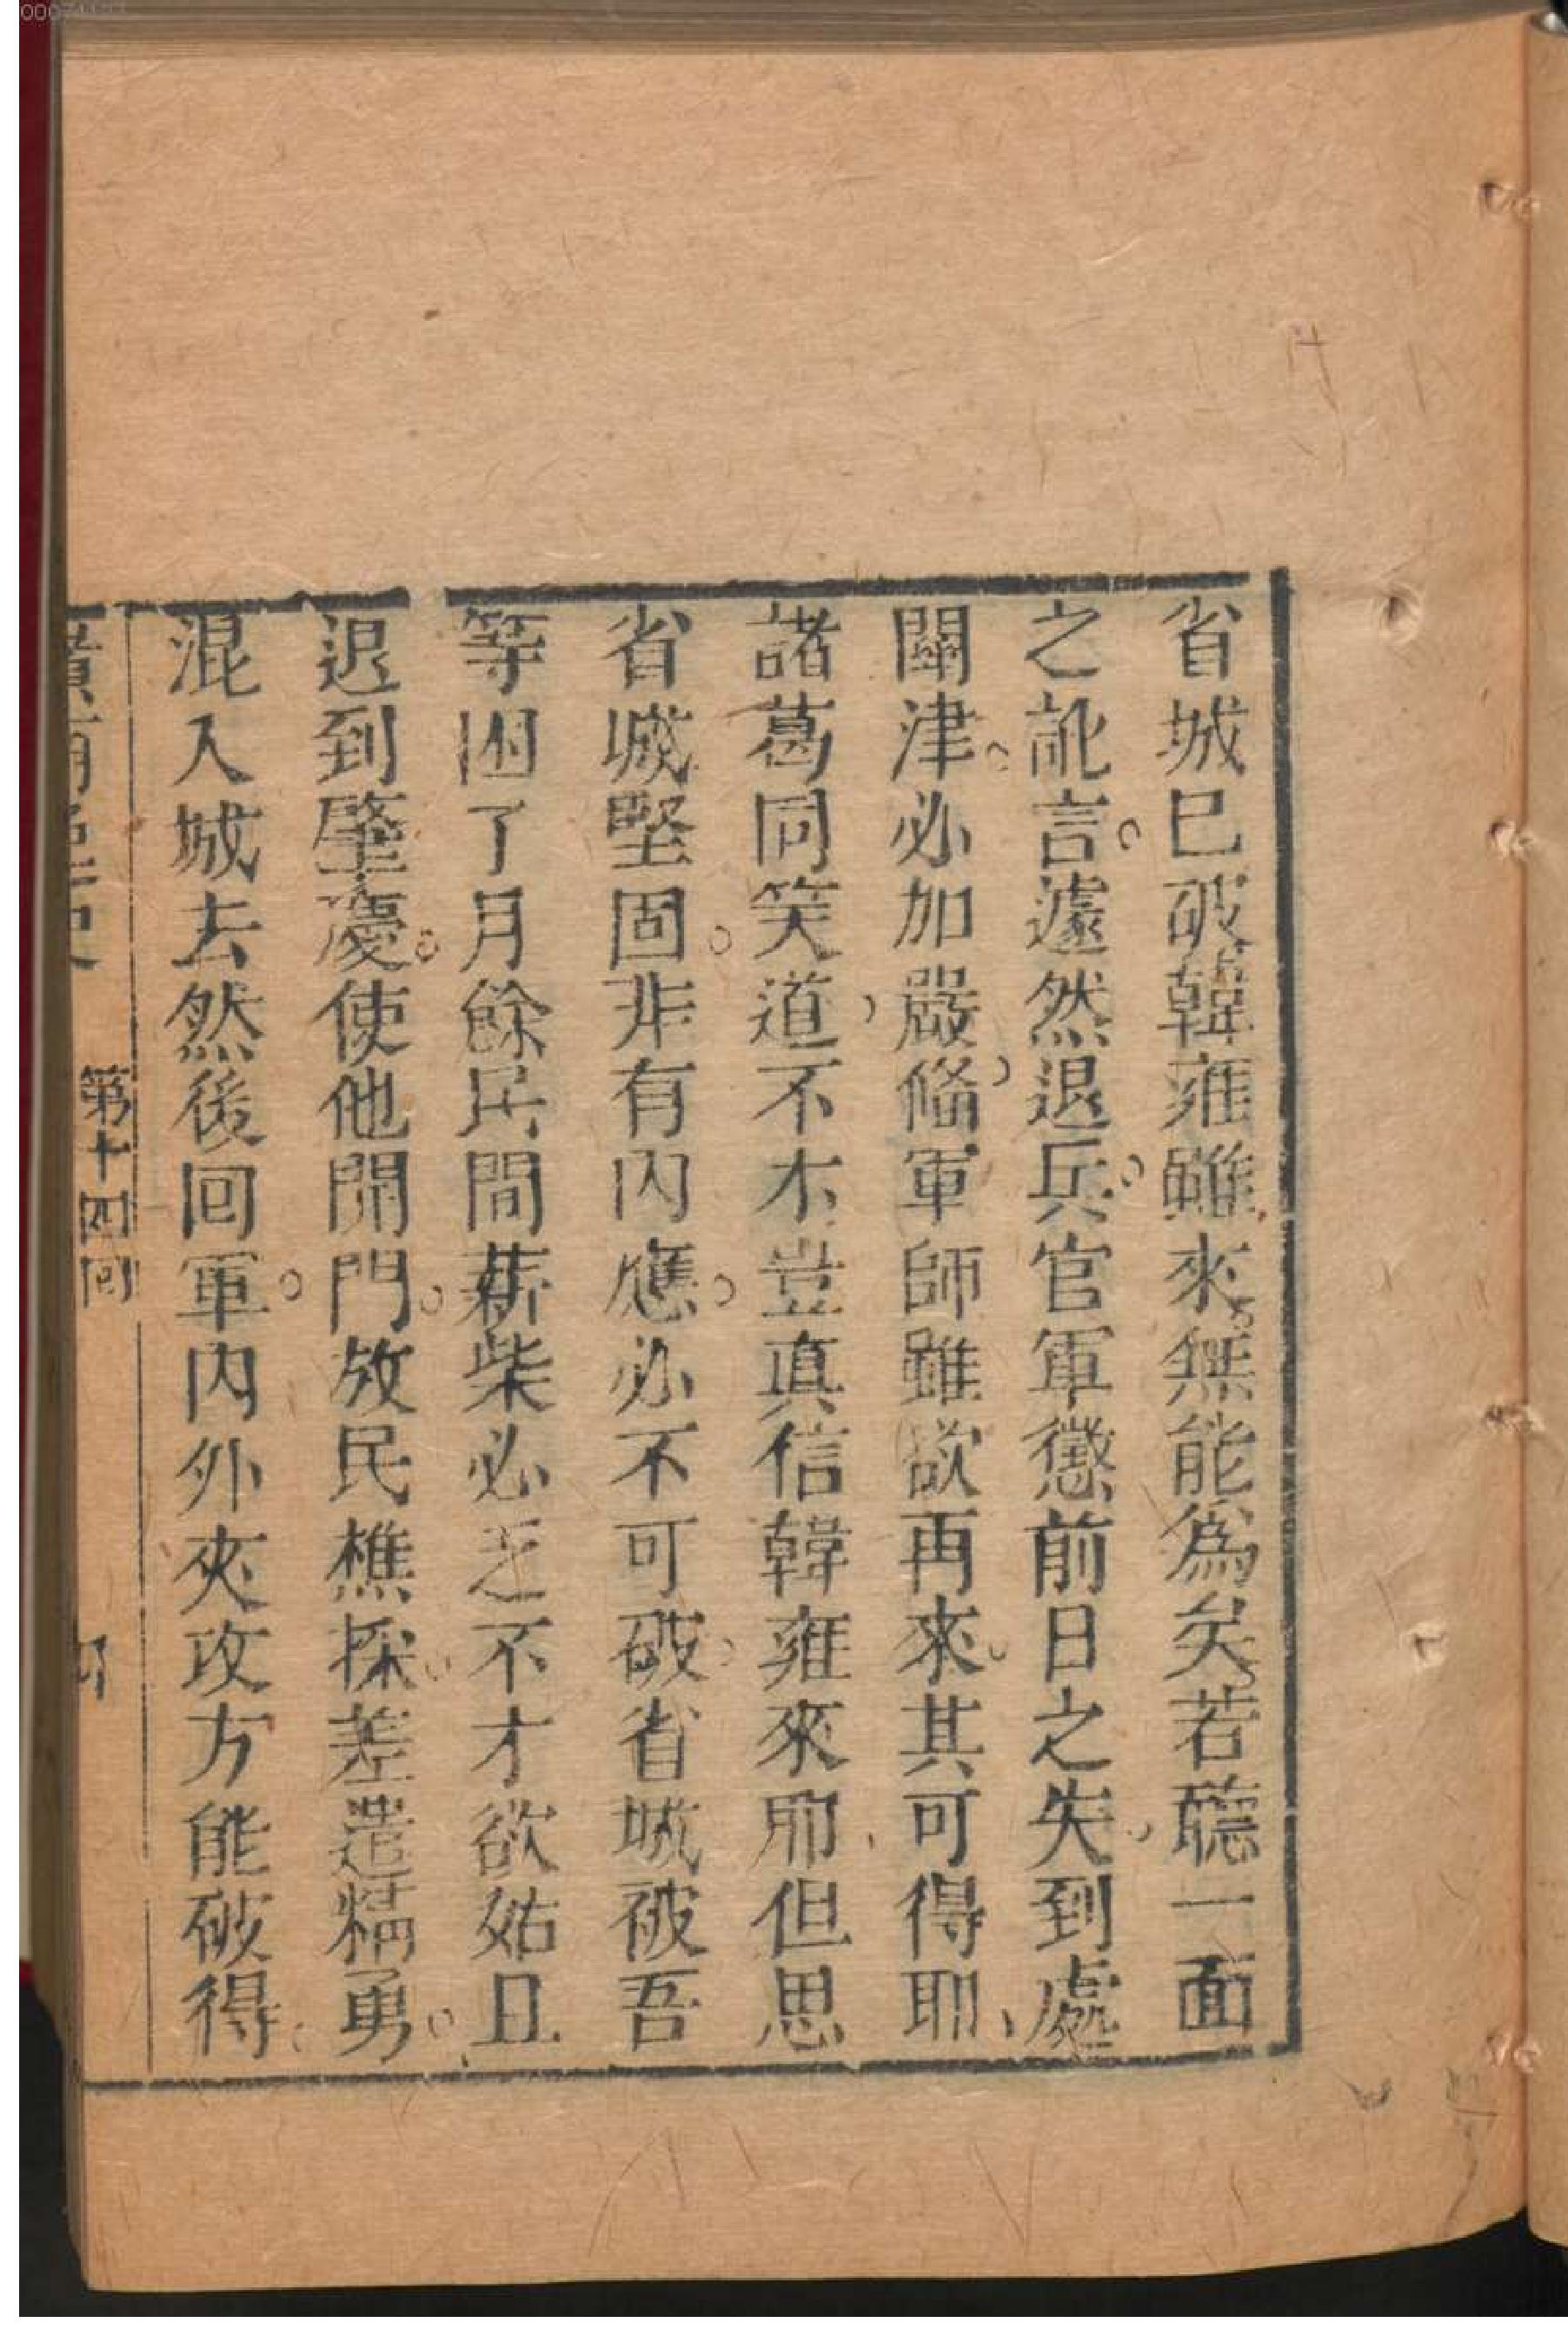 省城已破韓雍雖來無能為矣若聽一面
之訛言遽然退兵官軍懲前日之失到處
關津必加嚴備軍師雖欲再來其可得耶
諸葛同笑道不才豈真信韓雍來耶但思
省城堅固非有內應必不可破省城被吾
等困了月餘民間薪柴必乏不才欲姑且
退到肇慶使他開門放民樵採差遣精勇
混入城去然後回軍內外夾攻方能破得
第十四回